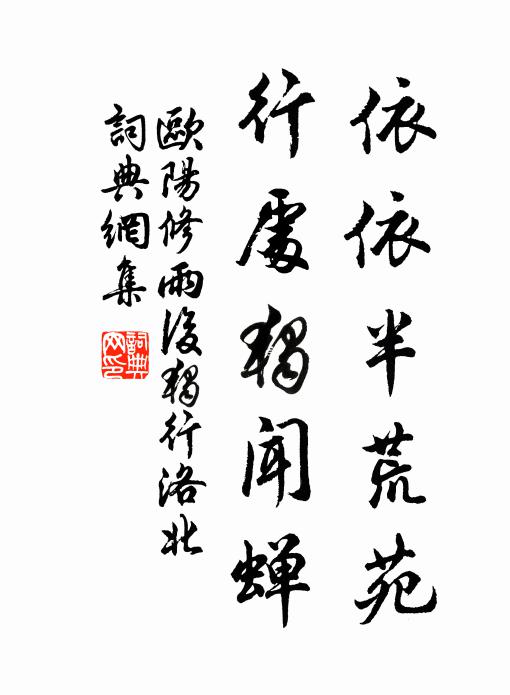 依依半荒苑
行處獨聞蟬
歐陽修雨後獨行洛北
詞典網集
詞典
网印